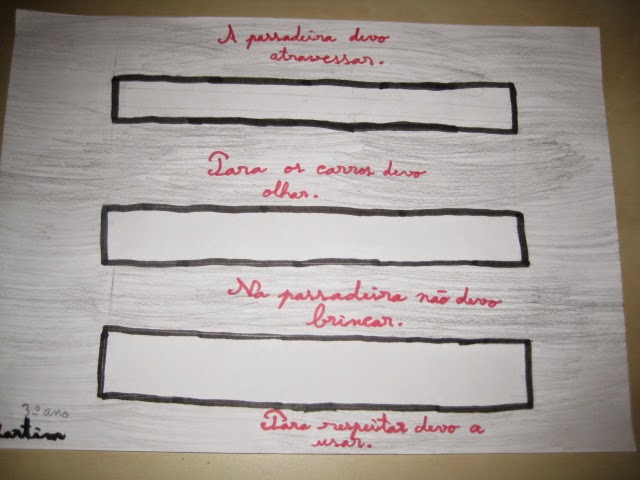 A passadeira devo
atravessar.
Para os carros devo
olhar.
Na passadeira não devo
brincar.
3º ano
Para respeitar devo a
usar.